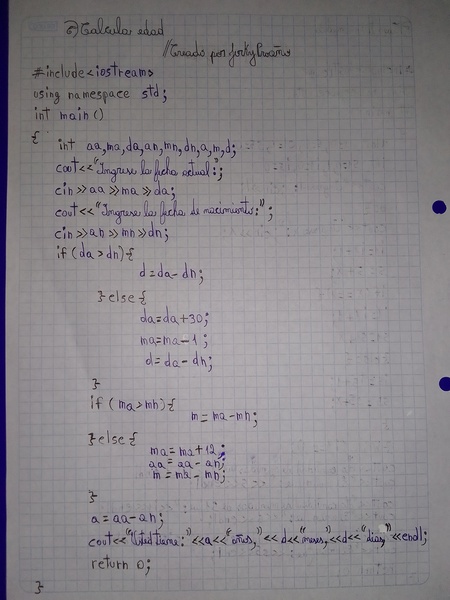 Calcular edad
//Creado por
#include<iostream>
using namespace std;
int main()
{
int aa,ma,da,an,mn,dn,a,m,d;
cout<<"Ingrese la fecha actual:";
cin>>aa>>ma>>da;
cout<<"Ingrese la fecha de nacimiento:";
cin>>an>>mn>>dn;
if(da>dn){
d=da-dn;
}else{
da=da+30;
ma=ma-1;
d=da-dn;
}
if(ma>mn){
m=ma-mn;
}else{
ma=ma+12;
aa=aa-an;
m=ma-mn;
}
a=aa-an;
cout<<"Usted tiene:"<<a<<"años,"<<d<<"meses,"<<d<<"dias,"<<endl;
return 0;
}